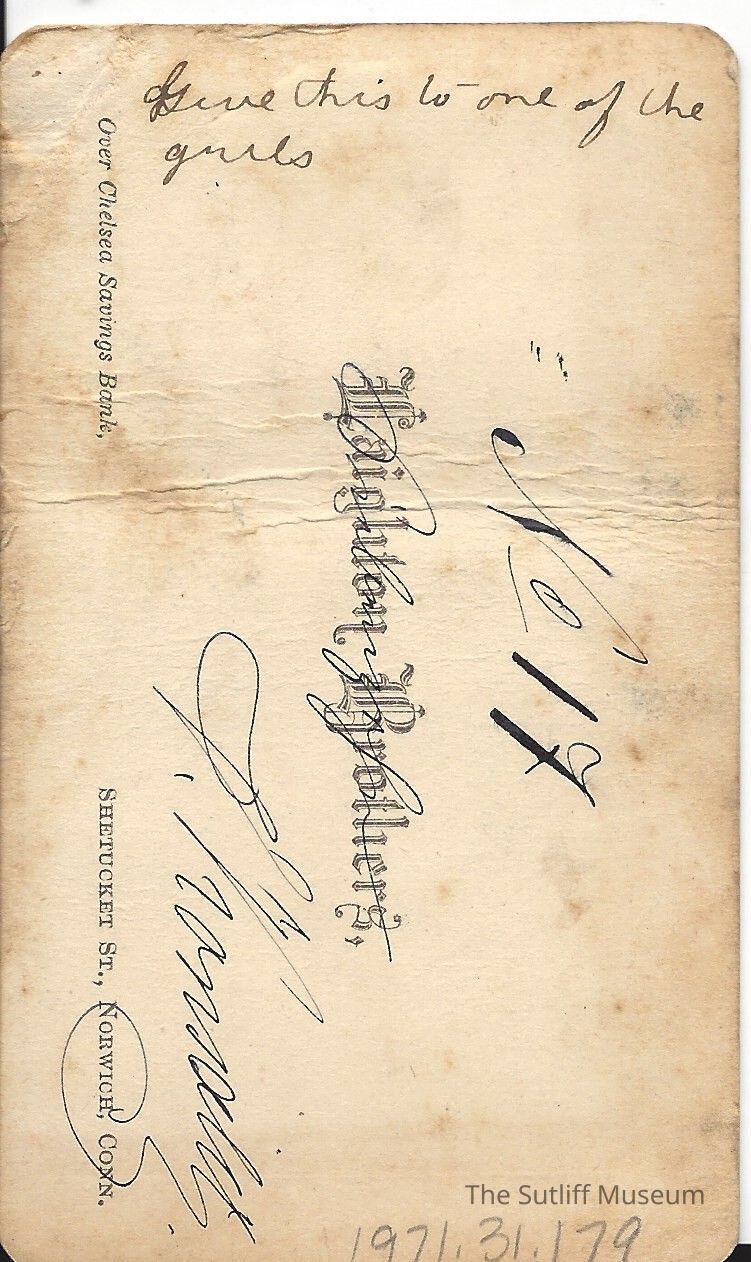 Give this to one of the
girls
No 17
Laighton Brothers,
Over Chelsea Savings Bank,
SHETUCKET ST., NORWICH, CONN.
The Sutliff Museum
1971.31.179